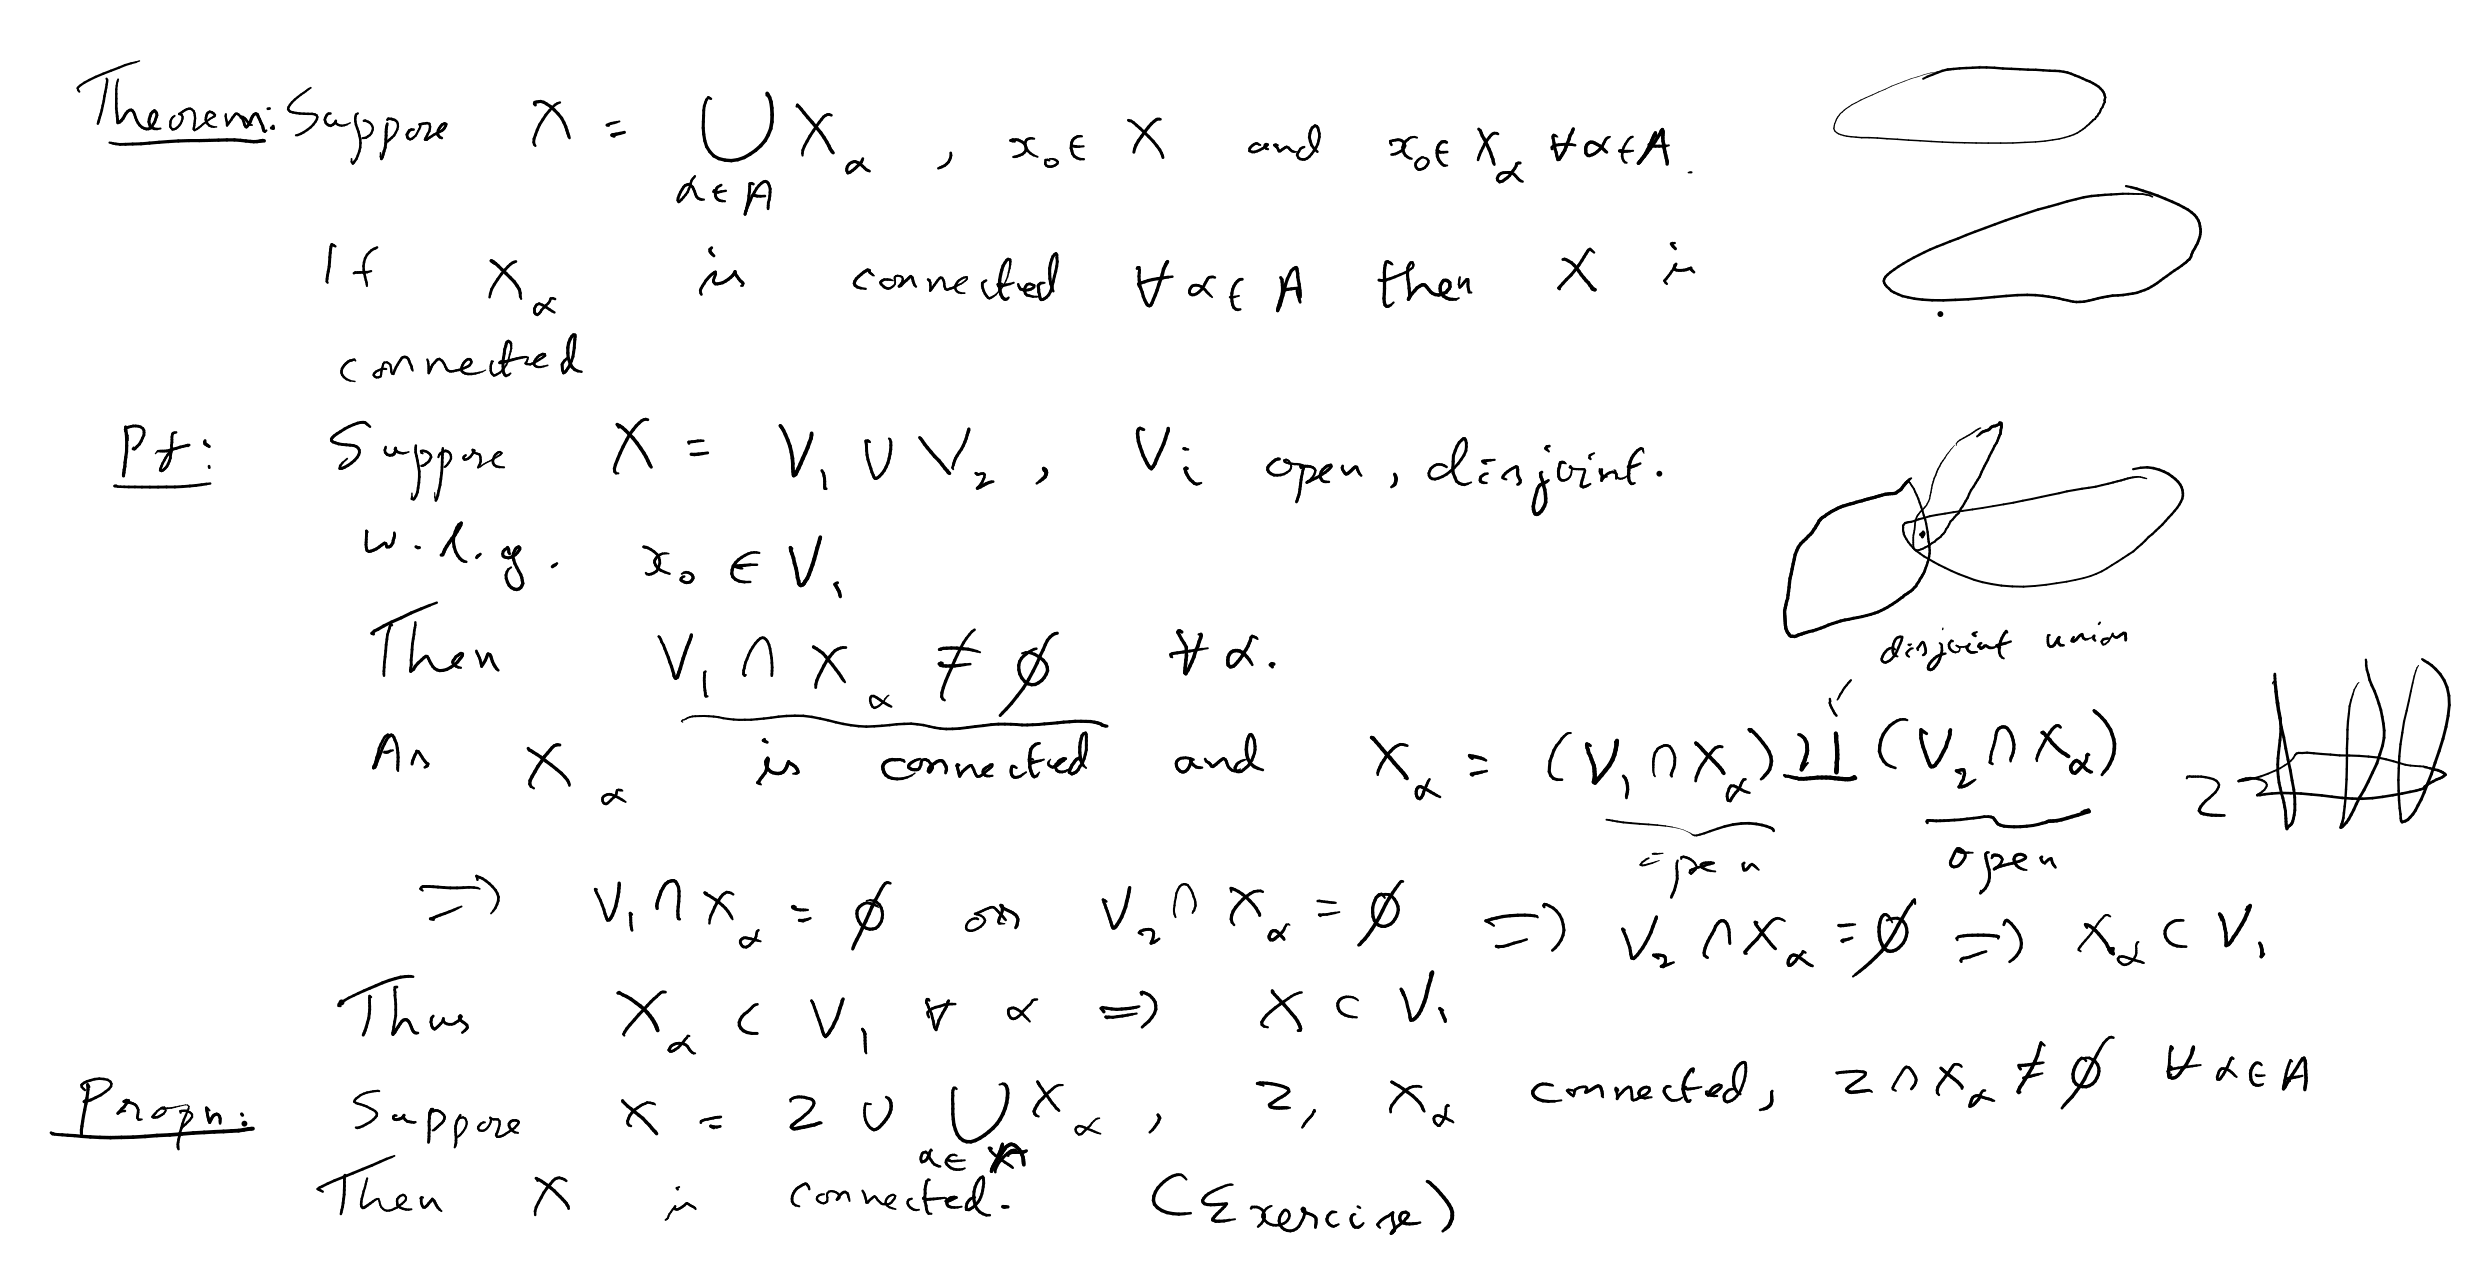 Theorem: Suppose X = ⋃_{α∈A} X_α , x₀ ∈ X and x₀ ∈ X_α ∀ α ∈ A.
If X_α is connected ∀ α ∈ A then X is
connected
Pf: Suppose X = V₁ ∪ V₂ , V_i open, disjoint.
w.l.g. x₀ ∈ V₁
Then V₁ ∩ X_α ≠ ∅ ∀ α.
disjoint union
As X_α is connected and X_α = (V₁ ∩ X_α) ⨿ (V₂ ∩ X_α)
open open
Z
⇒ V₁ ∩ X_α = ∅ or V₂ ∩ X_α = ∅ ⇒ V₂ ∩ X_α = ∅ ⇒ X_α ⊂ V₁
Thus X_α ⊂ V₁ ∀ α ⇒ X ⊂ V₁
Propn: Suppose X = Z ∪ ⋃_{α∈A} X_α , Z, X_α connected, Z ∩ X_α ≠ ∅ ∀ α ∈ A
Then X is connected. (Exercise)